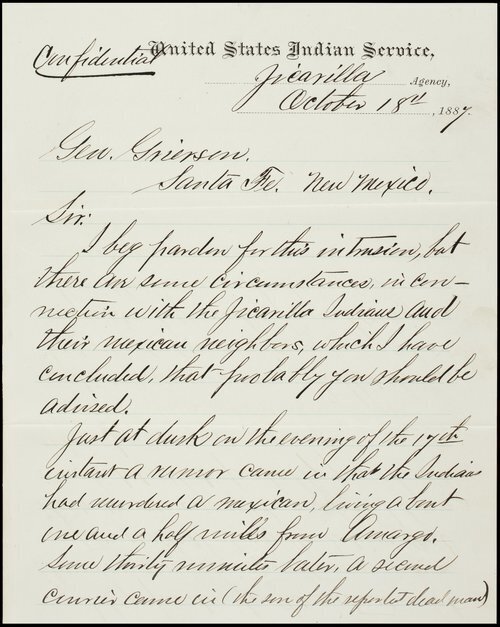 Confidential United States Indian Service,
Jicarilla Agency,
October 18th, 1887.
Gen. Grierson.
Santa Fe. New Mexico.
Sir:
I beg pardon for this intrusion, but
there are some circumstances, in con-
nection with the Jicarilla Indians and
their mexican neighbors, which I have
concluded, that probably you should be
advised.
Just at dusk on the evening of the 17th
instant a rumor came in that the Indians
had murdered a mexican, living about
one and a half mile's from Amargo.
Some thirty minutes later, a second
courier came in (the son of the reported dead man)